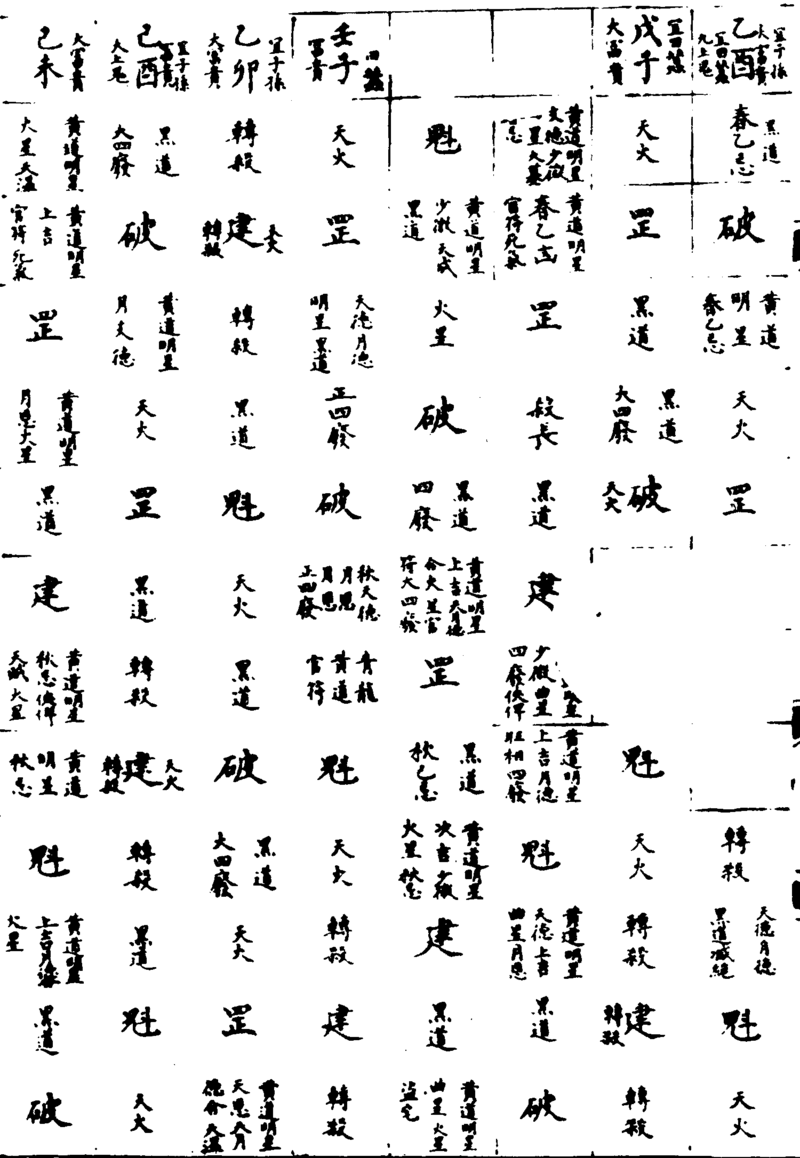 乙酉
宜子孫
大富貴
宜田蠶
九上冤
黑道
春乙忌
破
黃道
明星
春乙忌
天火
罡
轉殺
天德月德
黑道滅絕
魁
天火
戊子
宜田蠶
大富貴
天火
罡
黑道
黑道
大四廢
破
天火
魁
天火
轉殺
建
轉殺
轉殺
黃道明星
文德少微
黃道明星
官符死氣
罡
殺長
黑道
建
少微曲星
四廢
黃道明星
上吉月德
旺相四廢
魁
黃道明星
天德上吉
曲星月恩
黑道
破
魁
黃道明星
少微天成
黑道
火星
破
黑道
四廢
黃道明星
上吉天月德
合火星官
符大四廢
罡
黑道
秋乙忌
黃道明星
次吉少微
火星秋忌
建
黑道
黃道明星
曲星火星
壬子
田蠶
富貴
天火
罡
天德月德
明星黑道
正四廢
破
秋天德
月恩
正四廢
青龍
黃道
官符
魁
天火
轉殺
建
轉殺
乙卯
宜子孫
大富貴
轉殺
建
天火
轉殺
轉殺
黑道
魁
天火
黑道
破
黑道
大四廢
天火
罡
黃道明星
天恩天月
德合天温
己酉
宜子孫
富貴
大上冤
黑道
大四廢
破
黃道明星
月支德
天火
罡
黑道
轉殺
建
天火
轉殺
轉殺
黑道
魁
天火
己未
大富貴
黃道明星
火星天温
黃道明星
上吉
官符死氣
罡
黃道明星
月恩火星
黑道
建
黃道明星
天賊火星
黃道
明星
秋忌
魁
黃道明星
火星
黑道
破